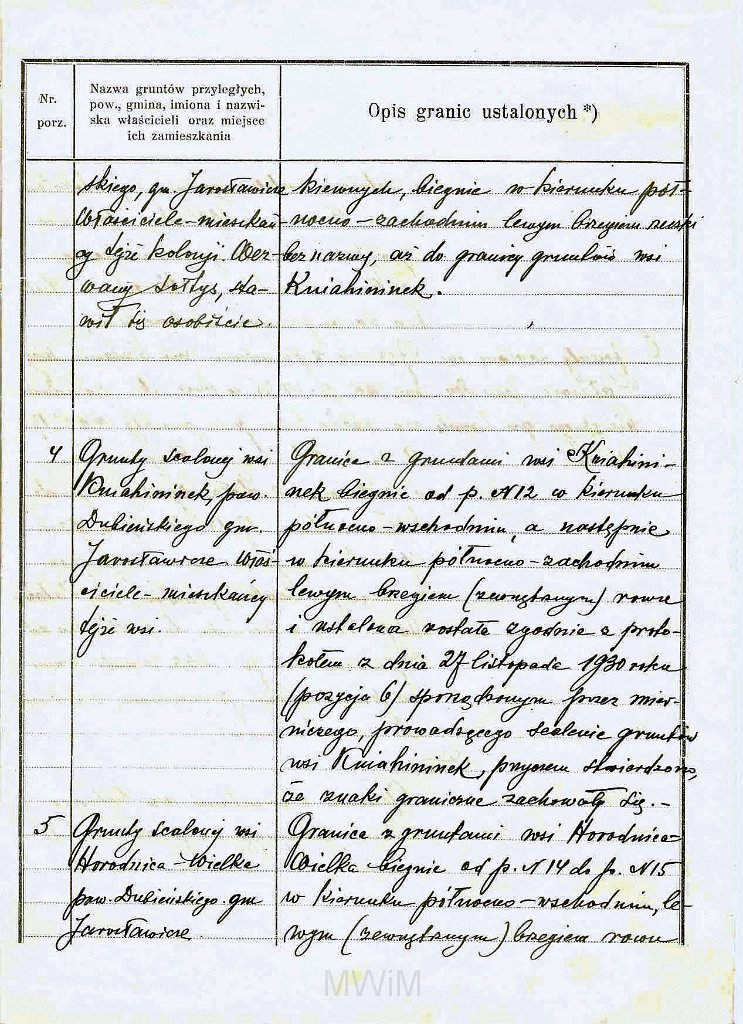 Nr.
porz.
Nazwa gruntów przyległych,
pow., gmina, imiona i nazwi-
ska właścicieli oraz miejsce
ich zamieszkania
Opis granic ustalonych *)
skiego, gm. Jarosławicze
Właściciele - mieszkań-
cy tejże kolonji. Wez-
wany sołtys, sta-
wił się osobiście.
kiewnych, biegnie w kierunku pół-
nocno - zachodnim lewym brzegiem rzeczki
bez nazwy, aż do granicy gruntów wsi
Kniahininek.
4
Grunty scalonej wsi
Kniahininek, pow.
Dubieńskiego gm.
Jarosławicze. Właś-
ciciele - mieszkańcy
tejże wsi.
Granica z gruntami wsi Kniahini-
nek biegnie od p. N12 w kierunku
północno - wschodnim, a następnie
w kierunku północno - zachodnim
lewym brzegiem (zewnętrznym) rowu
i ustalona została zgodnie z proto-
kołem z dnia 27 listopada 1930 roku
(pozycja 6) sporządzonym przez mier-
niczego, prowadzącego scalenie gruntów
wsi Kniahininek, przyczem stwierdzono,
że znaki graniczne zachowały się. -
5
Grunty scalonej wsi
Horodnica - Wielka
pow. Dubieńskiego gm
Jarosławicze.
Granica z gruntami wsi Horodnica-
Wielka biegnie od p. N14 do p. N15
w kierunku północno - wschodnim, le-
wym (zewnętrznym) brzegiem rowu
MWiM